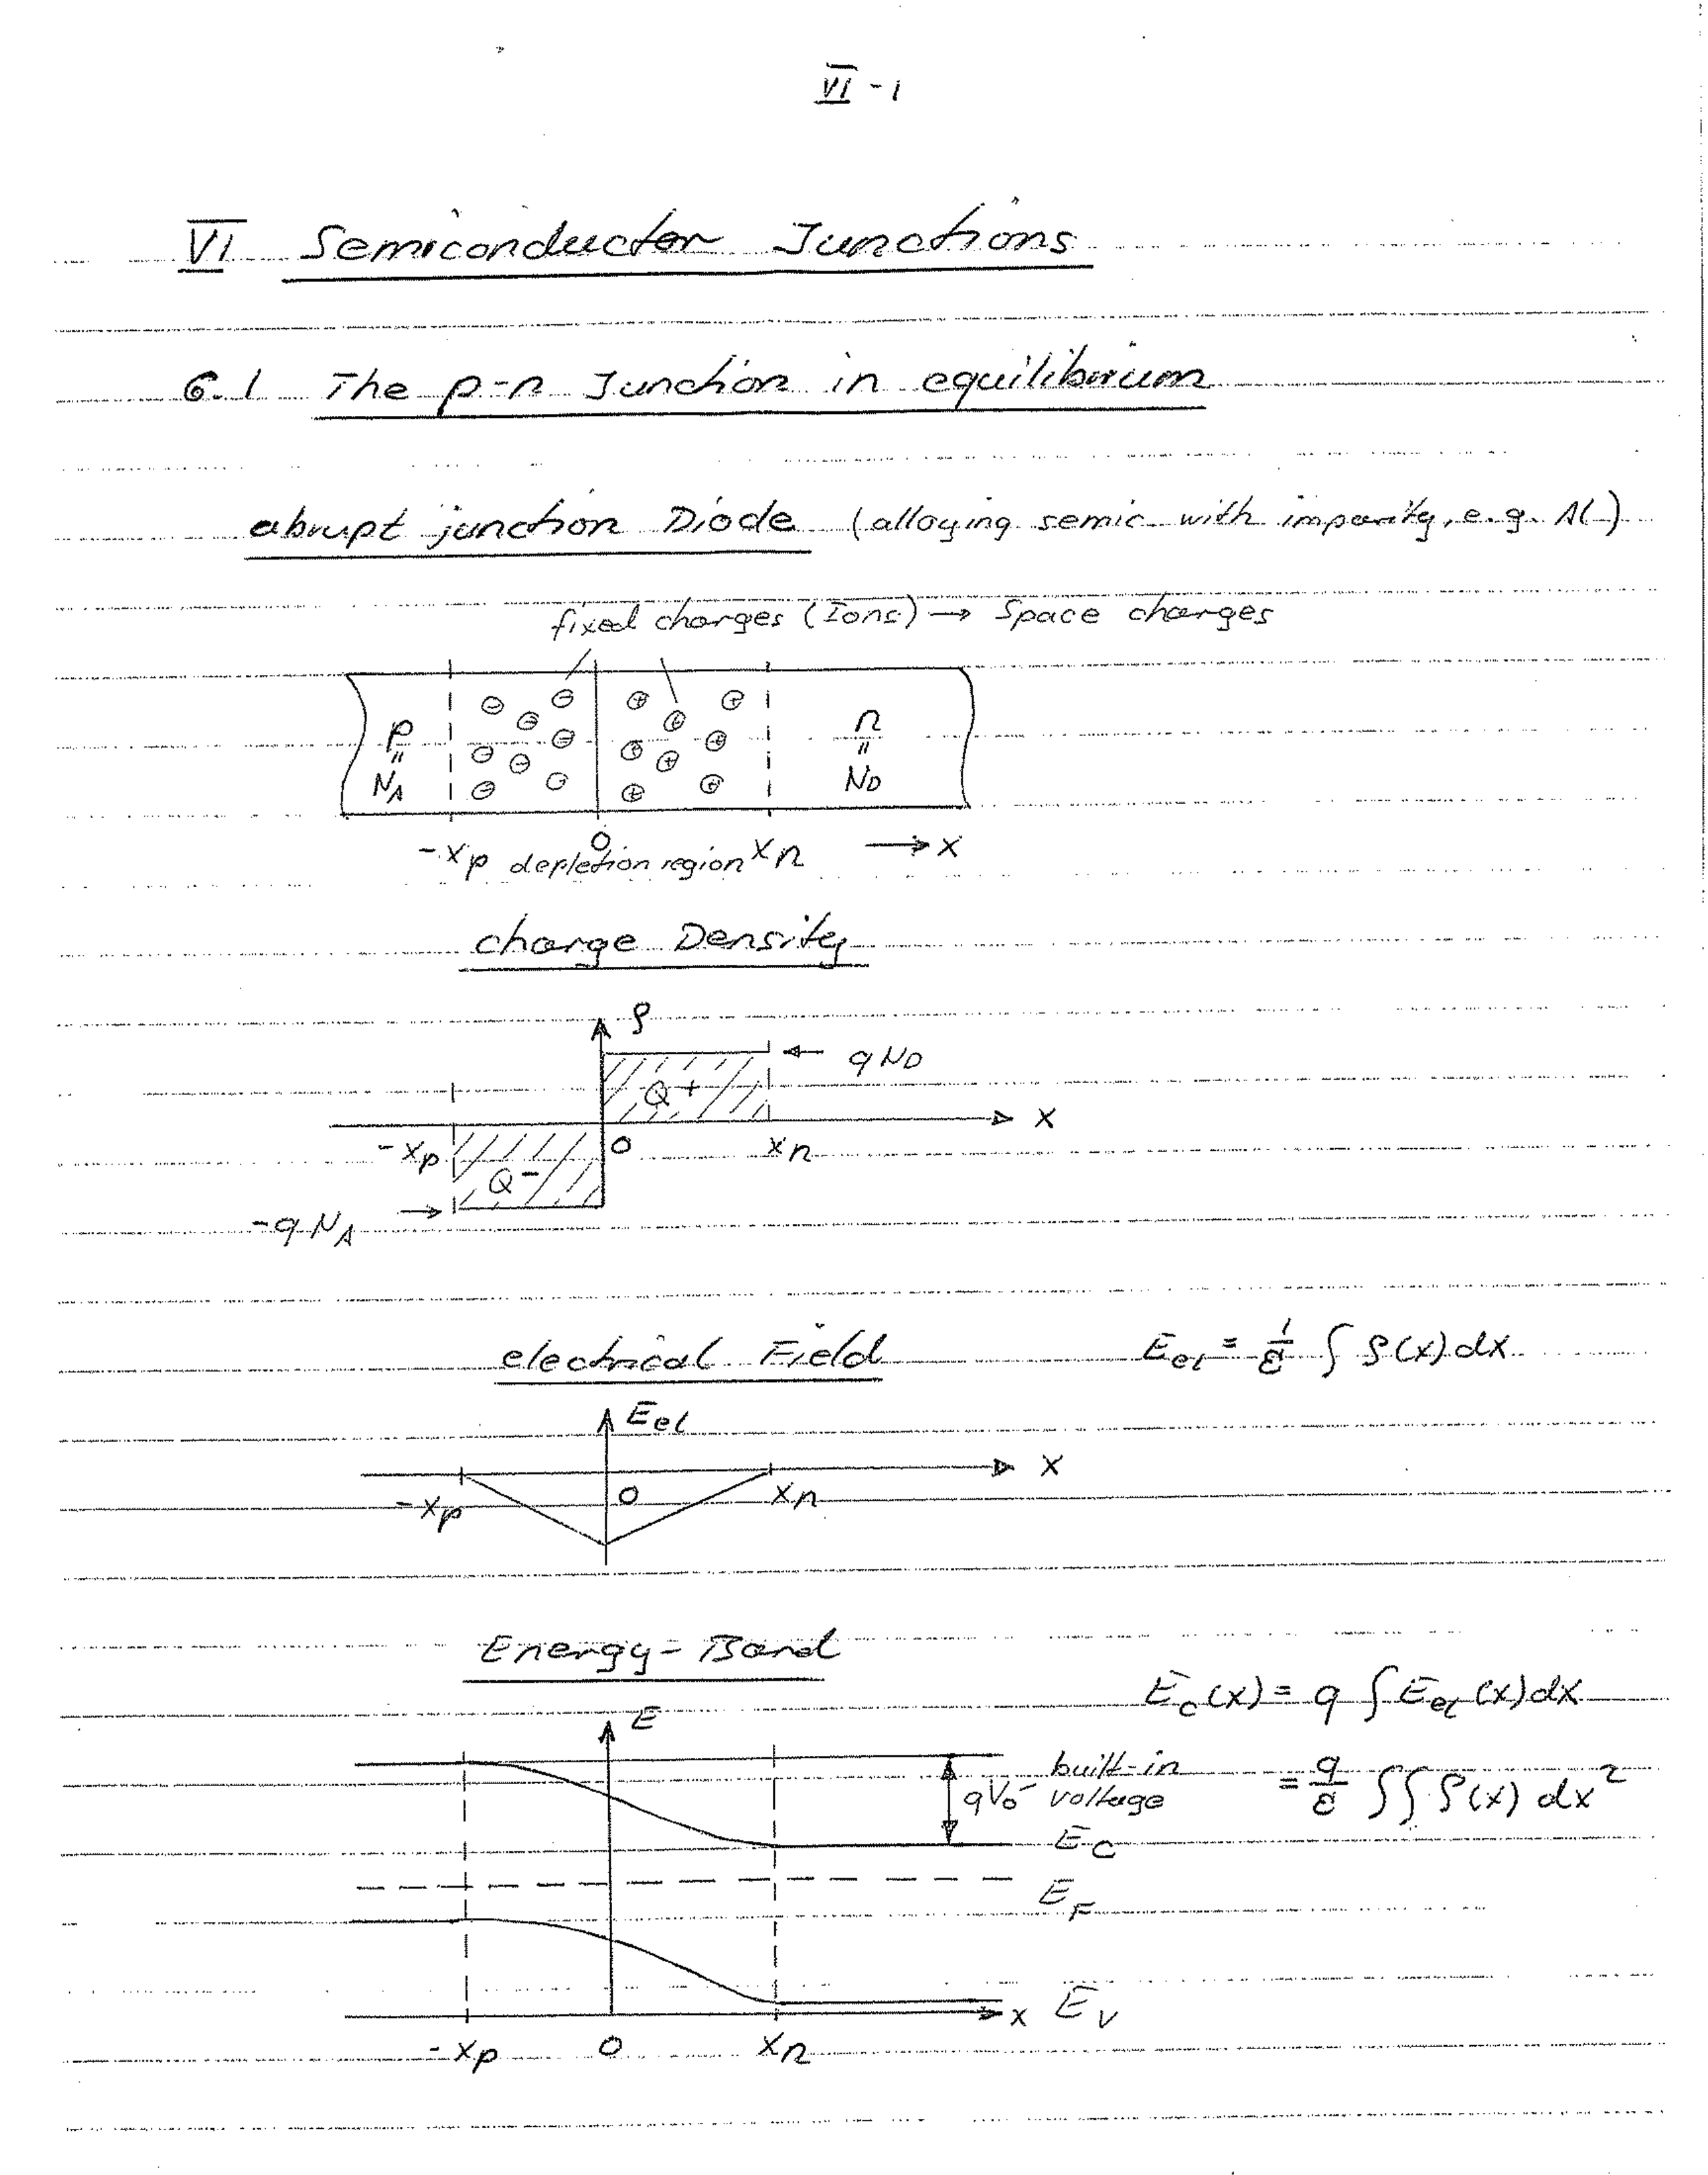 VI - 1
VI Semiconductor Junctions
6.1 The p-n Junction in equilibrium
abrupt junction Diode (alloying semic. with impurity, e.g. Al)
fixed charges (Ions) → Space charges
p n
" "
NA ND
⊖ ⊖ ⊖ ⊖ ⊖ ⊖ ⊖ ⊖ ⊕ ⊕ ⊕ ⊕ ⊕ ⊕ ⊕ ⊕
-xp 0 depletion region xn → x
charge Density
ρ
← qND
Q+
x
-xp 0 xn
Q-
-qNA →
electrical Field Eel = 1/ε ∫ ρ(x) dx
Eel
x
-xp 0 xn
Energy-Band
Ec(x) = q ∫ Eel (x) dx
E
built-in
qVo voltage = q/ε ∫∫ ρ(x) dx²
EC
EF
x EV
-xp 0 xn